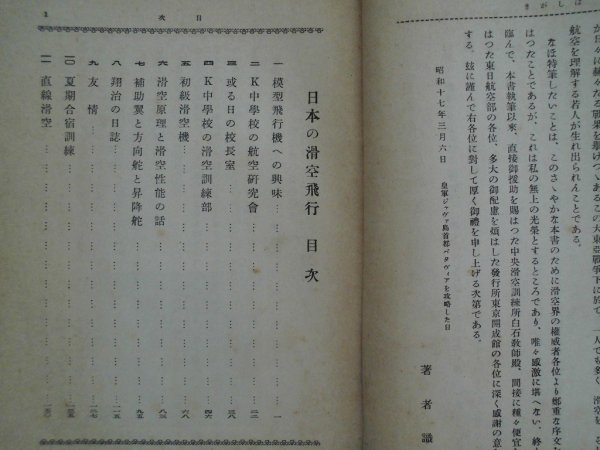 はしがき
が日々に赫々たる戰果を擧げつゝあるこの大東亞戰爭下に於て、一人でも多く、滑空を
航空を理解する若人が生れ出られんことである。
なほ特筆したいことは、このさゝやかな本書のために滑空界の權威者各位より鄭重な序文を
はつたことであるが、これは私の無上の光榮とするところであり、唯々感激に堪へない。終
臨んで、本書執筆以來、直接御援助を賜はつた中央滑空訓練所白石敎師殿、間接に種々便宜
はつた東日航空部の各位、多大の御配慮を煩はした發行所東京開成館の各位に深く感謝の意
する。玆に謹んで右各位に對して厚く御禮を申し上げる次第である。
昭和十七年三月六日
皇軍ジャヴァ島首都バタヴィアを攻略した日
著者識
目次
1
日本の滑空飛行 目次
一 模型飛行機への興味 一
二 K中學校の航空硏究會
三 或る日の校長室 三八
四 K中學校の滑空訓練部 四六
五 初級滑空機 五八
六 滑空原理と滑空性能の話
七 補助翼と方向舵と昇降舵 九五
八 翔治の日誌 一一五
九 友情 一二七
一〇 夏期合宿訓練 一三五
一一 直線滑空